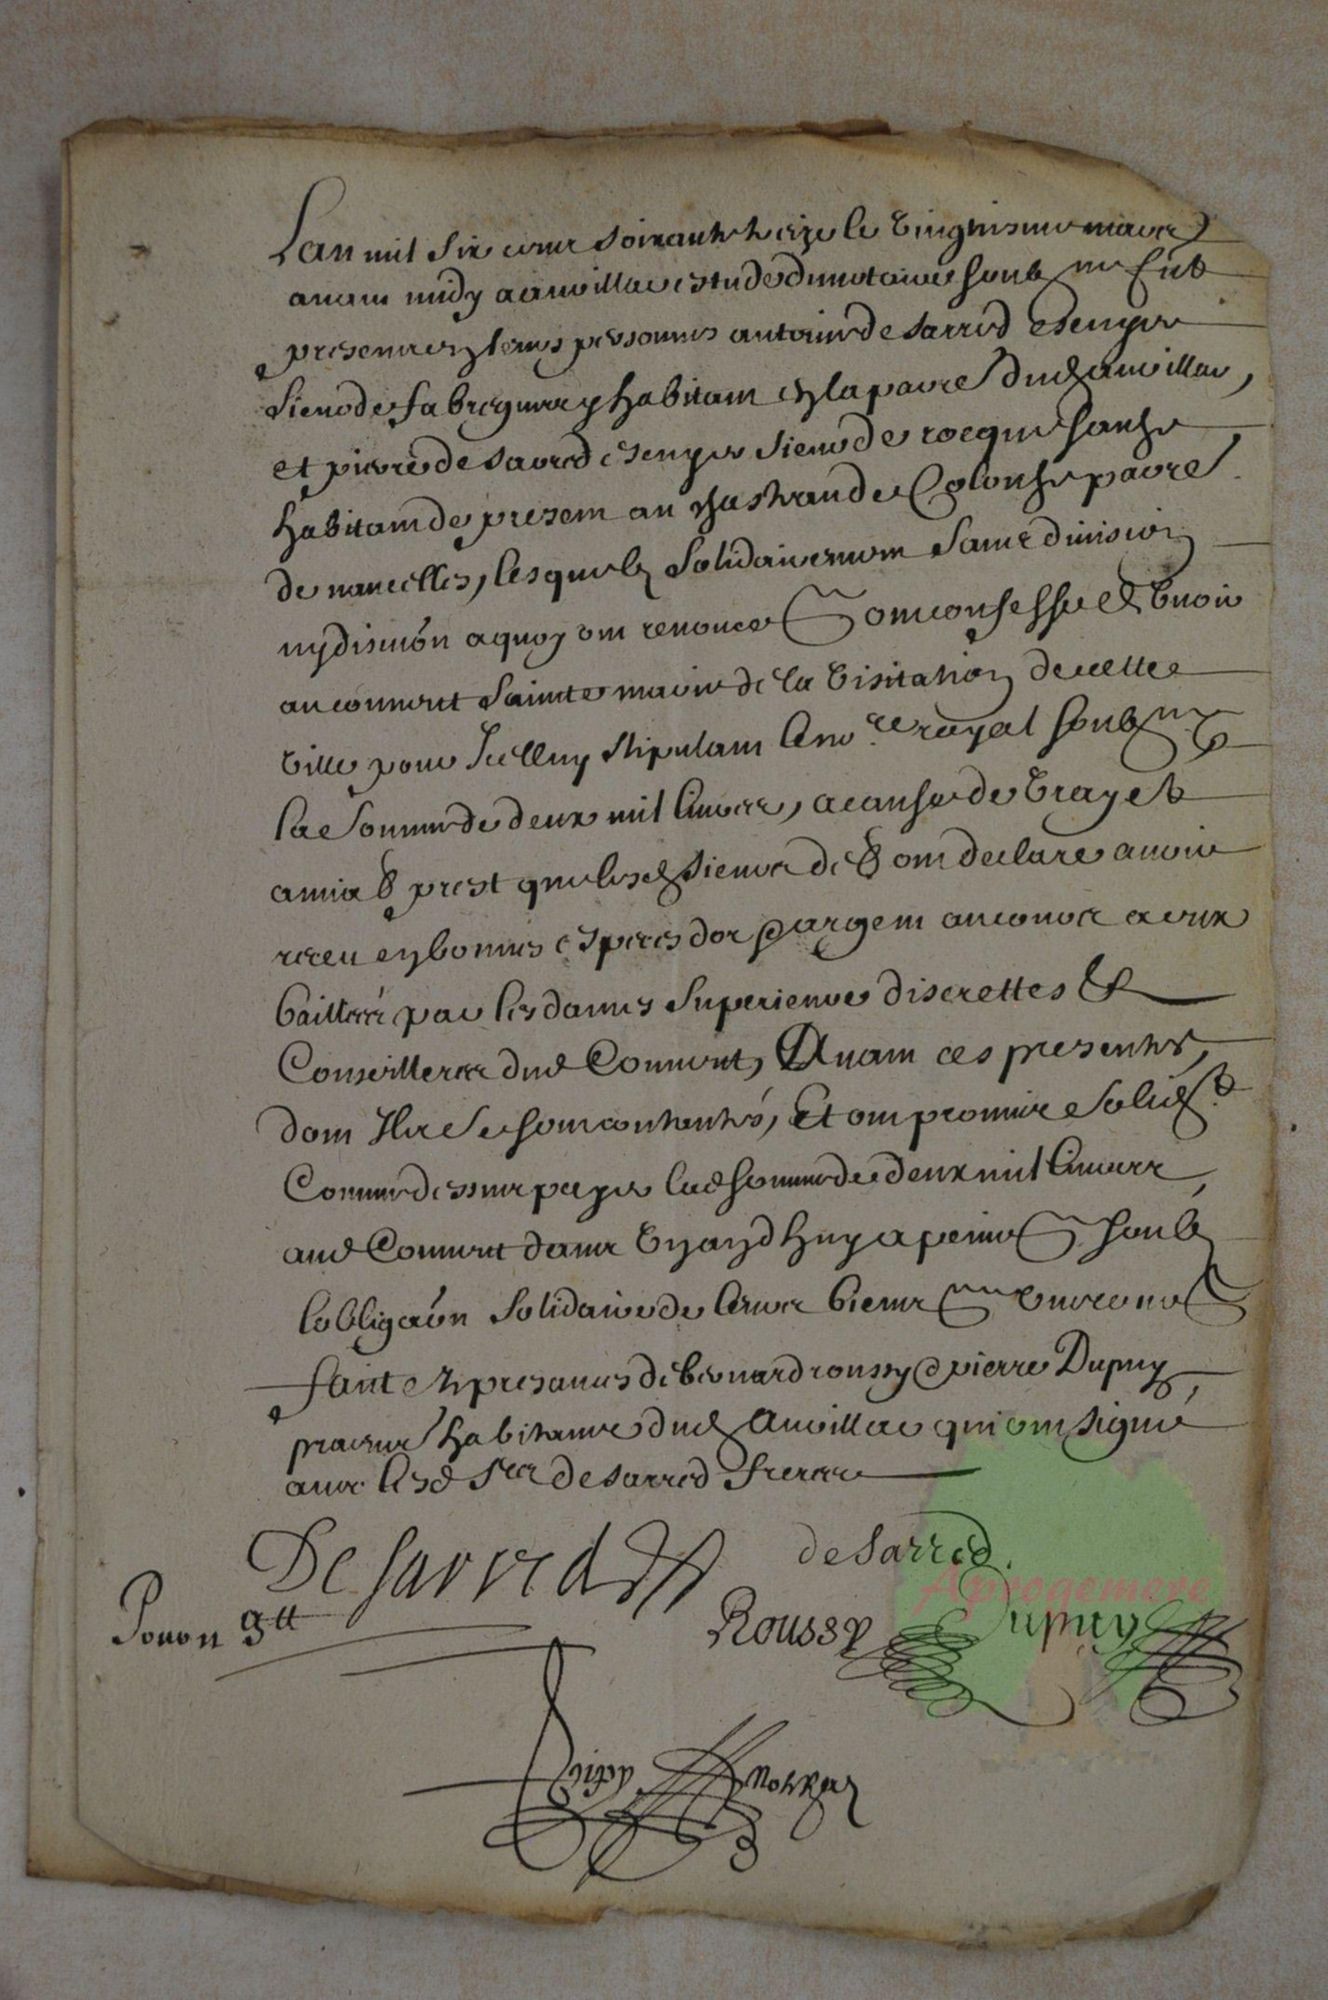 Lan mil six cens soixante treize le vingtiesme mars
avant midy a auvillar estude du notaire soubz.ne furt
presens en leurs personnes antoine de sarred escuyer
sieur de fabreguere habitant en la parre dud auvillar,
et pierre de sarred escuyer sieur de rocque
habitant de present au de Colonge parre
de nameelles, lesquelz solidairement sans division
ny disiuon a quoy ont renonce ont confesse debvoir
au couvent sainte marie de la visitation de cette
ville pour Icelluy stipulant le nore royal soubz.ne
la somme de deux mil livres, a cause de vray et
amiable prest que lesd sieurs deb ont declare avoir
receu en bonnes especes dor & argent au cours a eux
baillees par les dames superieure discrettes &
Conseilleres dud Couvent, Avant ces presentes,
dont Ils se sont contentés, Et ont promis solidt
Comme dessus payer lad somme de deux mil livres
aud Couvent dans dhuy a peine soubz
lobligaon solidaire de leurs biens
faict en presances de bernard roussy & pierre Dupuy
habitans dud Auvillar qui ont signé
avec lesd srs de sarred freres
De sarred
de sarred.
Roussy
Dupuy
Aprogemere